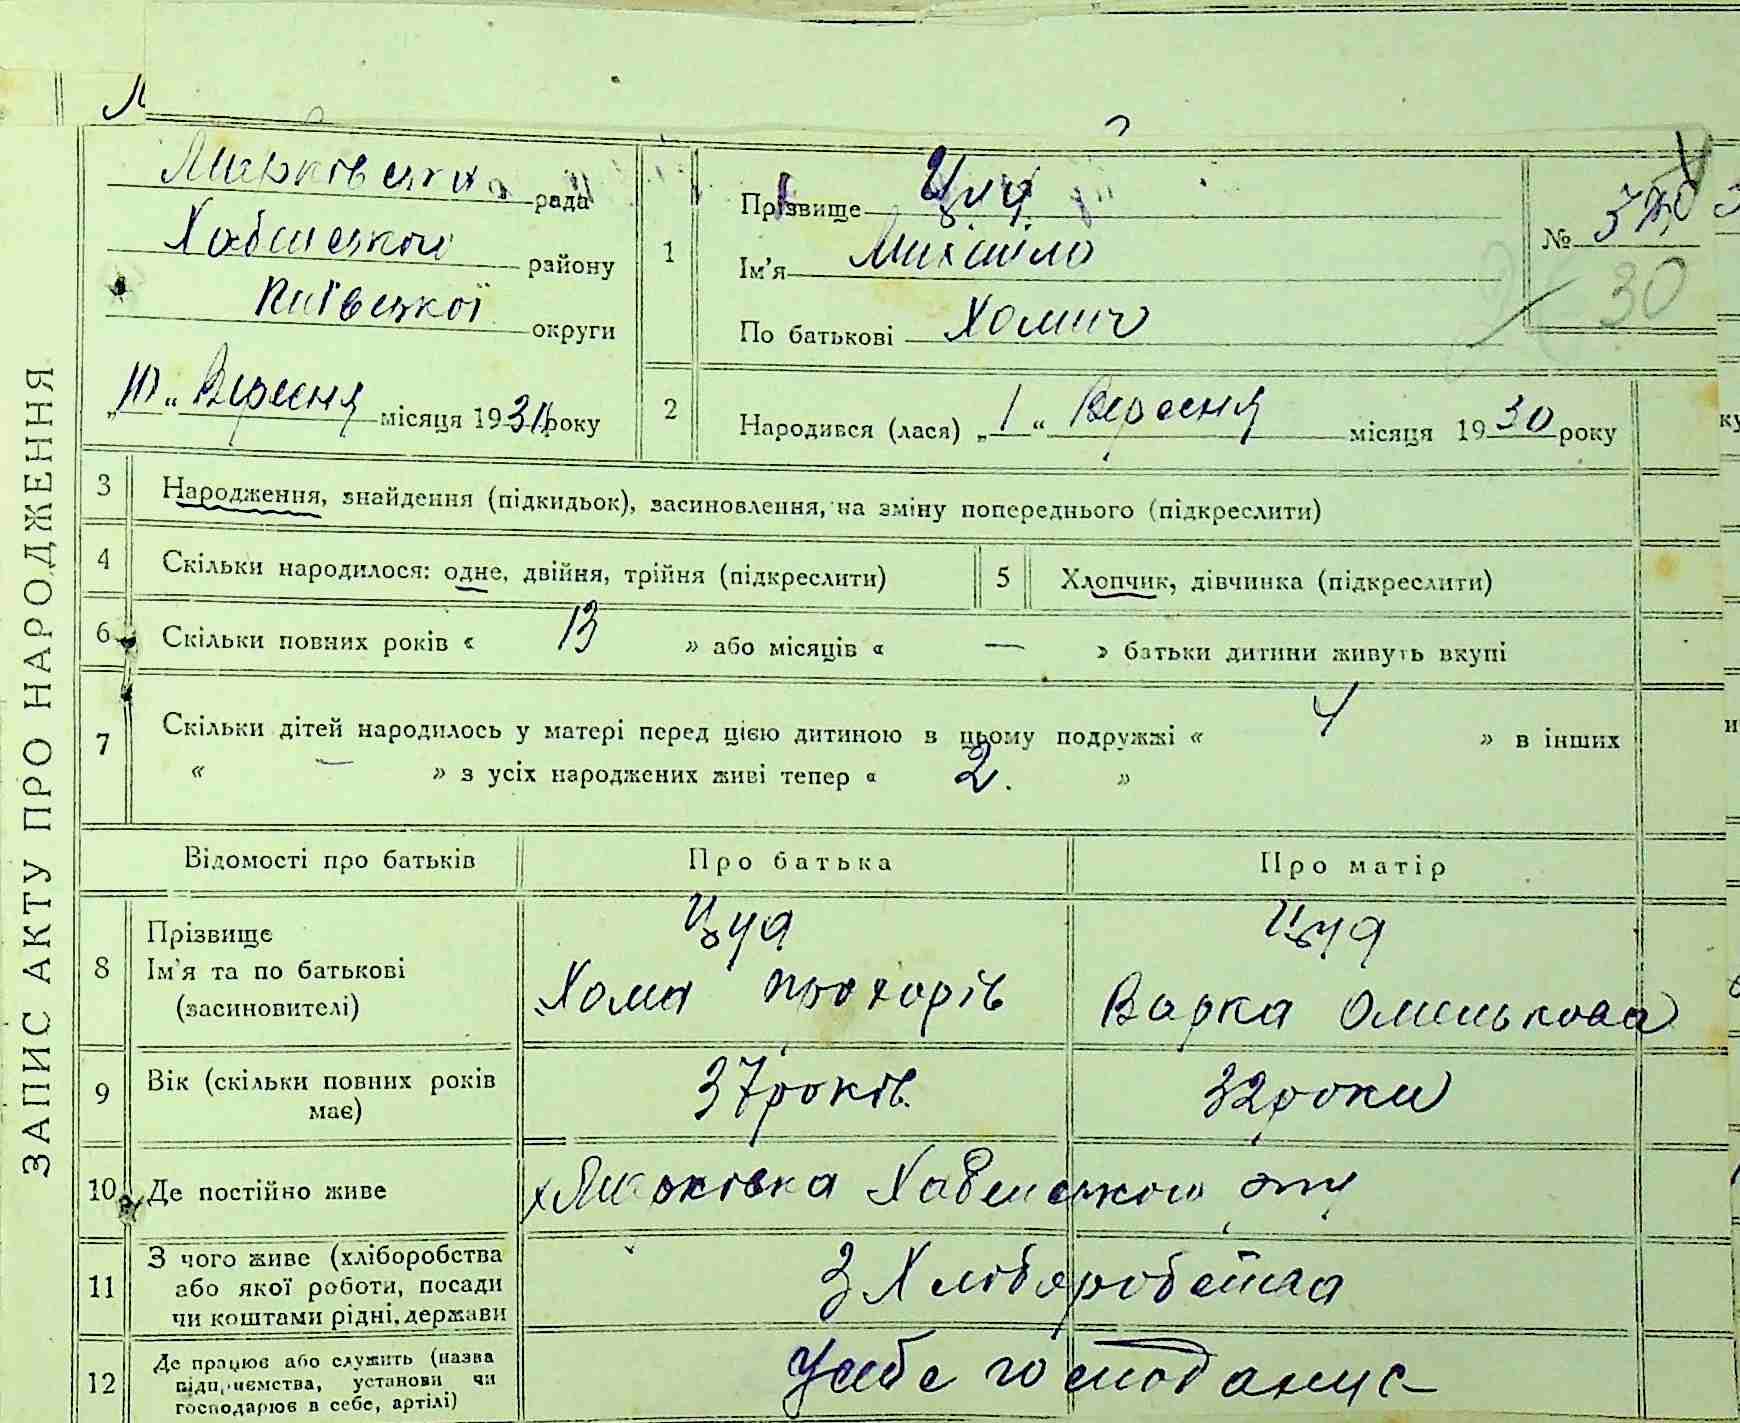 ЗАПИС АКТУ ПРО НАРОДЖЕННЯ
Марківська рада
Хабенського району
Київської округи
„10“ Вересня місяця 1930 року
1
Прізвище Цуя
Ім'я Михайло
По батькові Хомич
№
30
2
Народився (лася) „1“ Вересня місяця 1930 року
3 Народження, знайдення (підкидьок), засиновлення, на зміну попереднього (підкреслити)
4 Скільки народилося: одне, двійня, трійня (підкреслити)
5 Хлопчик, дівчинка (підкреслити)
6 Скільки повних років « 13 » або місяців « — » батьки дитини живуть вкупі
7 Скільки дітей народилось у матері перед цією дитиною в цьому подружжі « 4 » в інших
« — » з усіх народжених живі тепер « 2. »
Відомості про батьків Про батька Про матір
8
Прізвище
Ім'я та по батькові
(засиновителі)
Цуя
Хома Прохорів
Цуя
Варка Омелькова
9
Вік (скільки повних років
має)
37 років.
32 роки
10 Де постійно живе
Марківка Хабенського
11
З чого живе (хліборобства
або якої роботи, посади
чи коштами рідні, держави
З Хліборобства
12
Де працює або служить (назва
підприємства, установи чи
господарює в себе, артілі)
У себе господарює